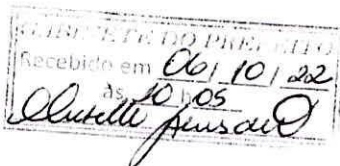 GABINETE DO PREFEITO
Recebido em 06/10/22
às 10 h 05